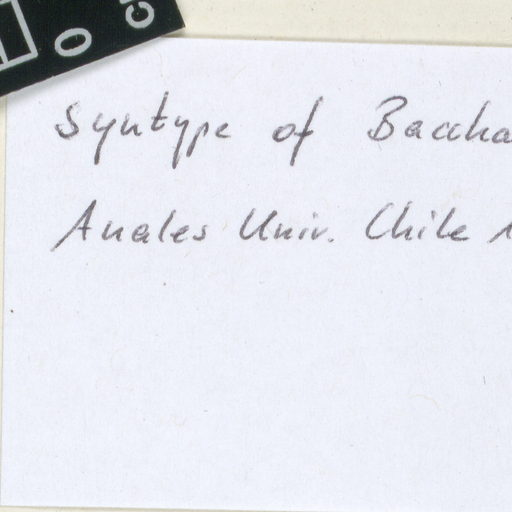 0
Syntype of Baccha
Anales Univ. Chile